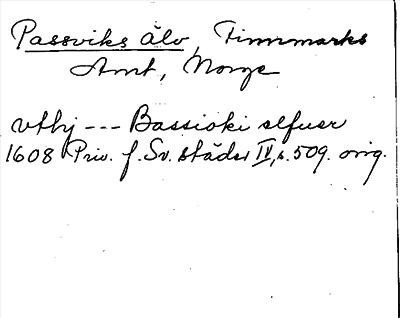 Passviks älv, Finnmarks
Amt, Norge
vthj --- Bassioki elfuer
1608 Priv. f. Sv. städer IV, s. 509. orig.